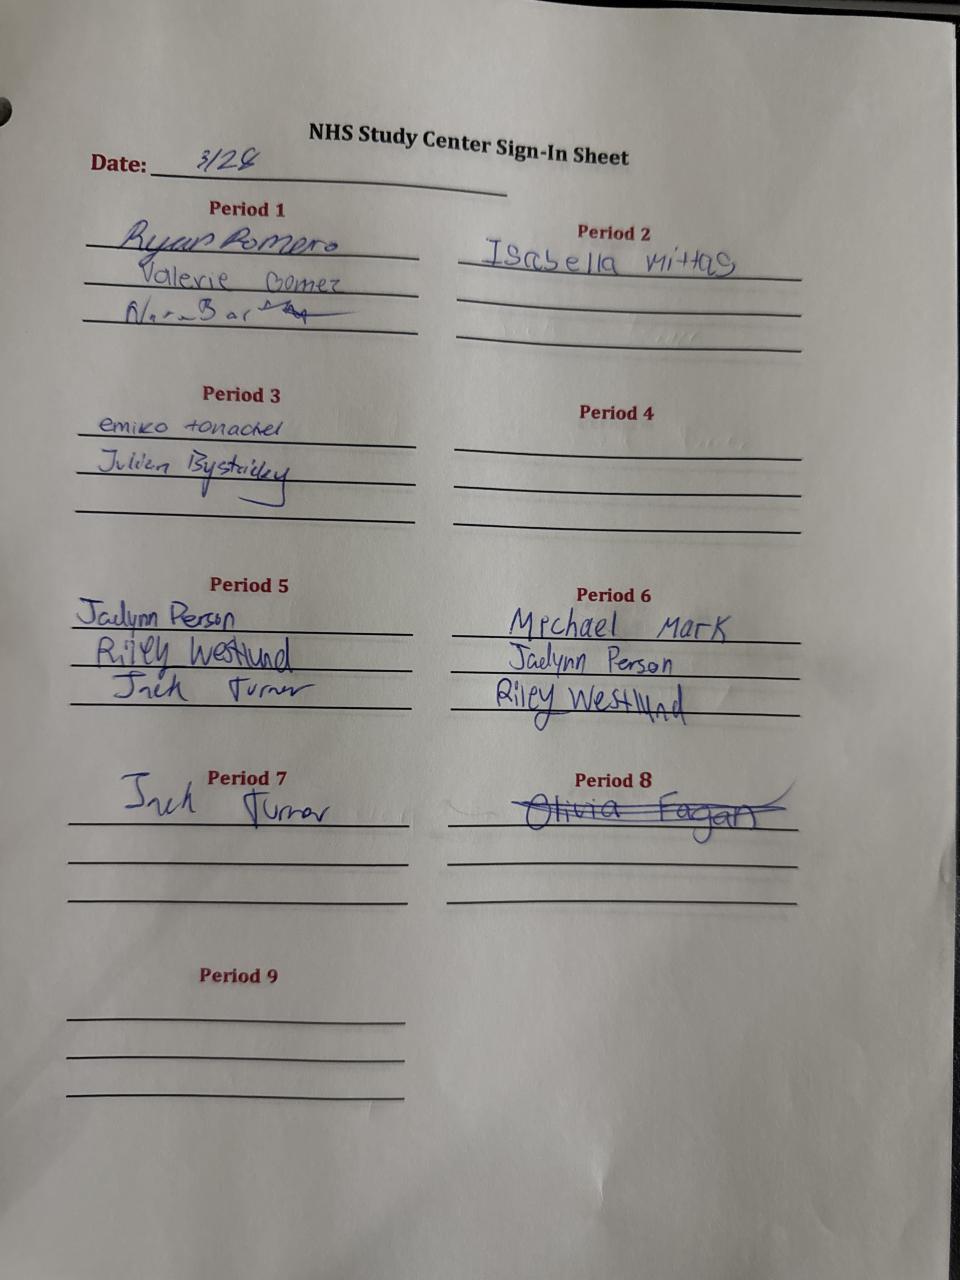 NHS Study Center Sign-In Sheet
Date: 3/28
Period 1
Ryan Romero
Valerie Gomez
Period 2
Isabella Mittas
Period 3
emiko tonachel
Julien Bystricky
Period 4
Period 5
Jaelynn Person
Riley Westlund
Jack Turner
Period 6
Michael Mark
Jaelynn Person
Riley Westlund
Period 7
Jack Turner
Period 8
Olivia Fagan
Period 9